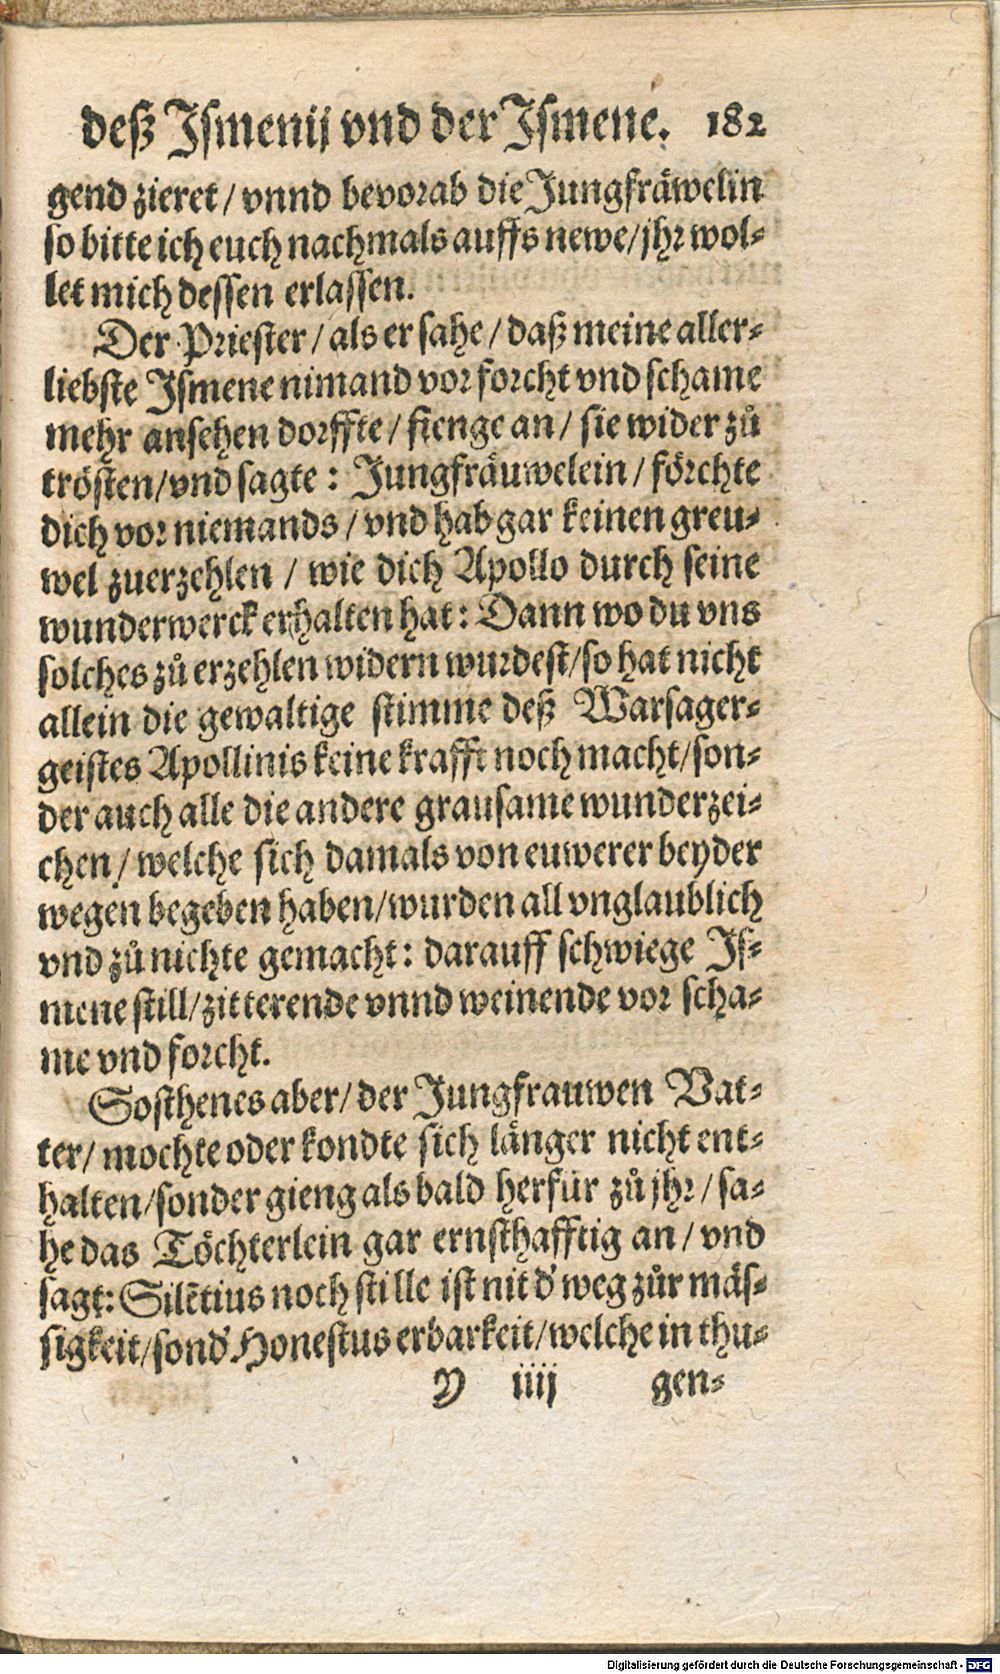 deß Ismenij vnd der Ismene. 182
gend zieret / vnnd bevorab die Jungfräwelin
so bitte ich euch nachmals auffs newe / jhr wol-
let mich dessen erlassen.
Der Priester / als er sahe / daß meine aller-
liebste Ismene nimand vor forcht vnd schame
mehr ansehen dorffte / fienge an / sie wider zů
trösten / vnd sagte : Jungfräuwelein / förchte
dich vor niemands / vnd hab gar keinen greu-
wel zuerzehlen / wie dich Apollo durch seine
wunderwerck erhalten hat : Dann wo du vns
solches zů erzehlen widern wurdest / so hat nicht
allein die gewaltige stimme deß Warsager-
geistes Apollinis keine krafft noch macht / son-
der auch alle die andere grausame wunderzei-
chen / welche sich damals von euwerer beyder
wegen begeben haben / wurden all vnglaublich
vnd zů nichte gemacht : darauff schwiege Is-
mene still / zitterende vnnd weinende vor scha-
me vnd forcht.
Sosthenes aber / der Jungfrauwen Vat-
ter / mochte oder kondte sich länger nicht ent-
halten / sonder gieng als bald herfür zů jhr / sa-
he das Töchterlein gar ernsthafftig an / vnd
sagt : Silẽtius noch stille ist nit d' weg zůr mäs-
sigkeit / sond' Honestus erbarkeit / welche in thu-
Y iiij gen-
Digitalisierung gefördert durch die Deutsche Forschungsgemeinschaft - DFG